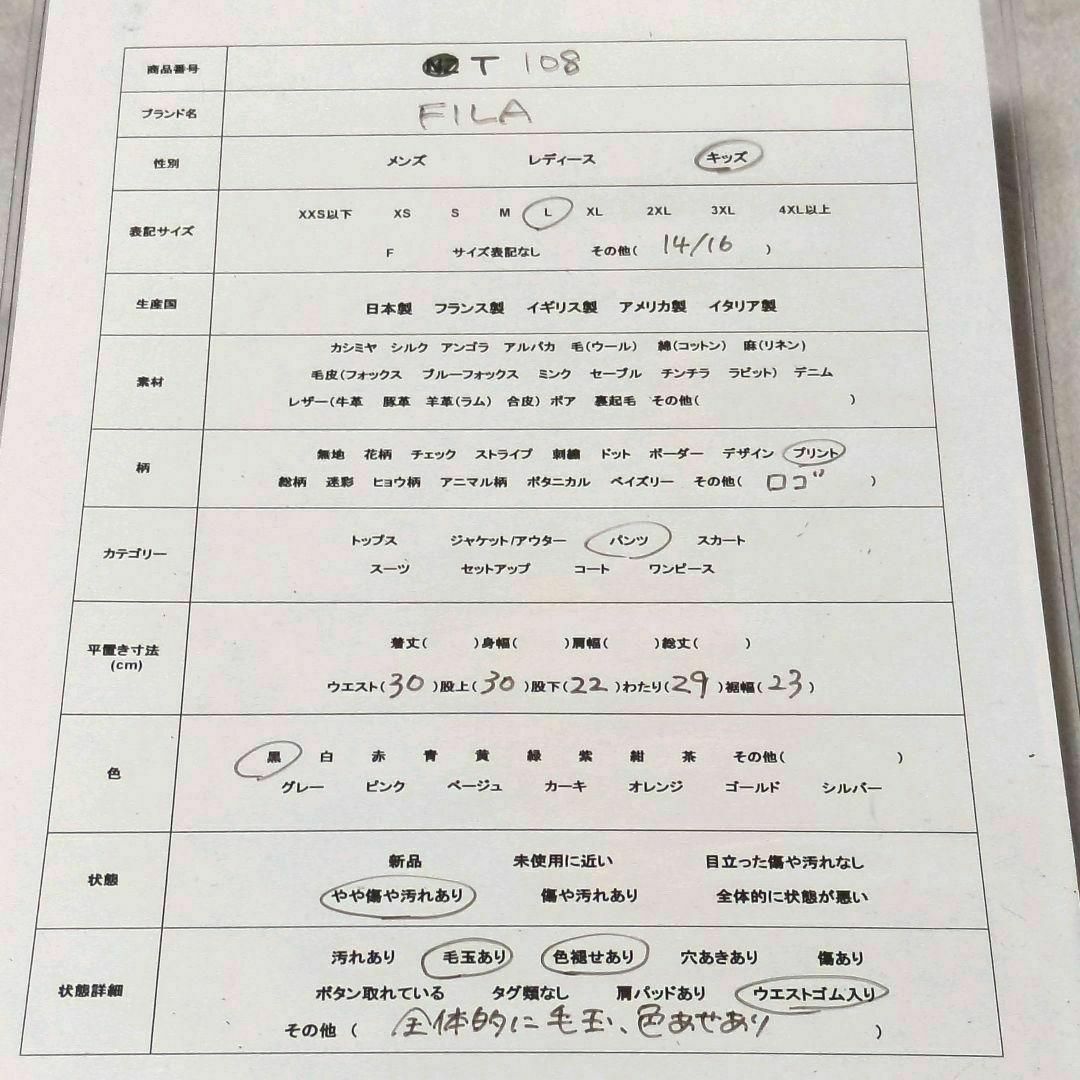 商品番号 T 108
ブランド名 FILA
性別 メンズ レディース キッズ
表記サイズ
XXS以下 XS S M L XL 2XL 3XL 4XL以上
F サイズ表記なし その他( 14/16 )
生産国 日本製 フランス製 イギリス製 アメリカ製 イタリア製
素材
カシミヤ シルク アンゴラ アルパカ 毛(ウール) 綿(コットン) 麻(リネン)
毛皮(フォックス ブルーフォックス ミンク セーブル チンチラ ラビット) デニム
レザー(牛革 豚革 羊革(ラム) 合皮) ボア 裏起毛 その他( )
柄
無地 花柄 チェック ストライプ 刺繍 ドット ボーダー デザイン プリント
総柄 迷彩 ヒョウ柄 アニマル柄 ボタニカル ペイズリー その他( ロゴ )
カテゴリー
トップス ジャケット/アウター パンツ スカート
スーツ セットアップ コート ワンピース
平置き寸法
(cm)
着丈( )身幅( )肩幅( )総丈( )
ウエスト(30)股上(30)股下(22)わたり(29)裾幅(23)
色
黒 白 赤 青 黄 緑 紫 紺 茶 その他( )
グレー ピンク ベージュ カーキ オレンジ ゴールド シルバー
状態
新品 未使用に近い 目立った傷や汚れなし
やや傷や汚れあり 傷や汚れあり 全体的に状態が悪い
状態詳細
汚れあり 毛玉あり 色褪せあり 穴あきあり 傷あり
ボタン取れている タグ類なし 肩パッドあり ウエストゴム入り
その他 ( 全体的に毛玉、色あせあり )